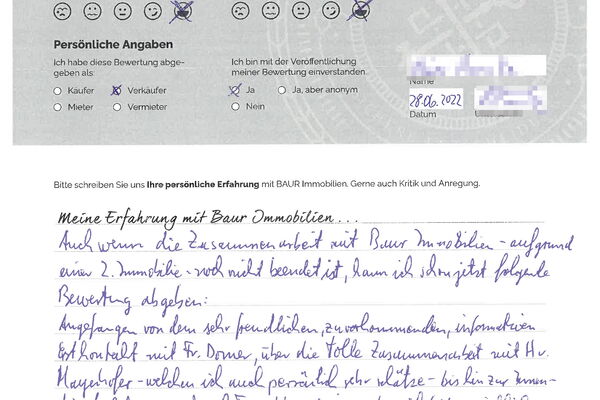 Persönliche Angaben
Ich habe diese Bewertung abge-
geben als:
Käufer
Verkäufer
Mieter
Vermieter
Ich bin mit der Veröffentlichung
meiner Bewertung einverstanden.
Ja
Ja, aber anonym
Nein
Name
28.06.2022
Datum
Bitte schreiben Sie uns Ihre persönliche Erfahrung mit BAUR Immobilien. Gerne auch Kritik und Anregung.
Meine Erfahrung mit Baur Immobilien...
Auch wenn die Zusammenarbeit mit Baur Immobilien - aufgrund
einer 2. Immobilie - noch nicht beendet ist, kann ich schon jetzt folgende
Bewertung abgeben:
Angefangen von dem sehr freundlichen, zuvorkommenden, informativen
Erstkontakt mit Fr. Dorner, über die tolle Zusammenarbeit mit Hr.
Mayerhofer - welchen ich auch persönlich sehr schätze - bis hin zur Innen-